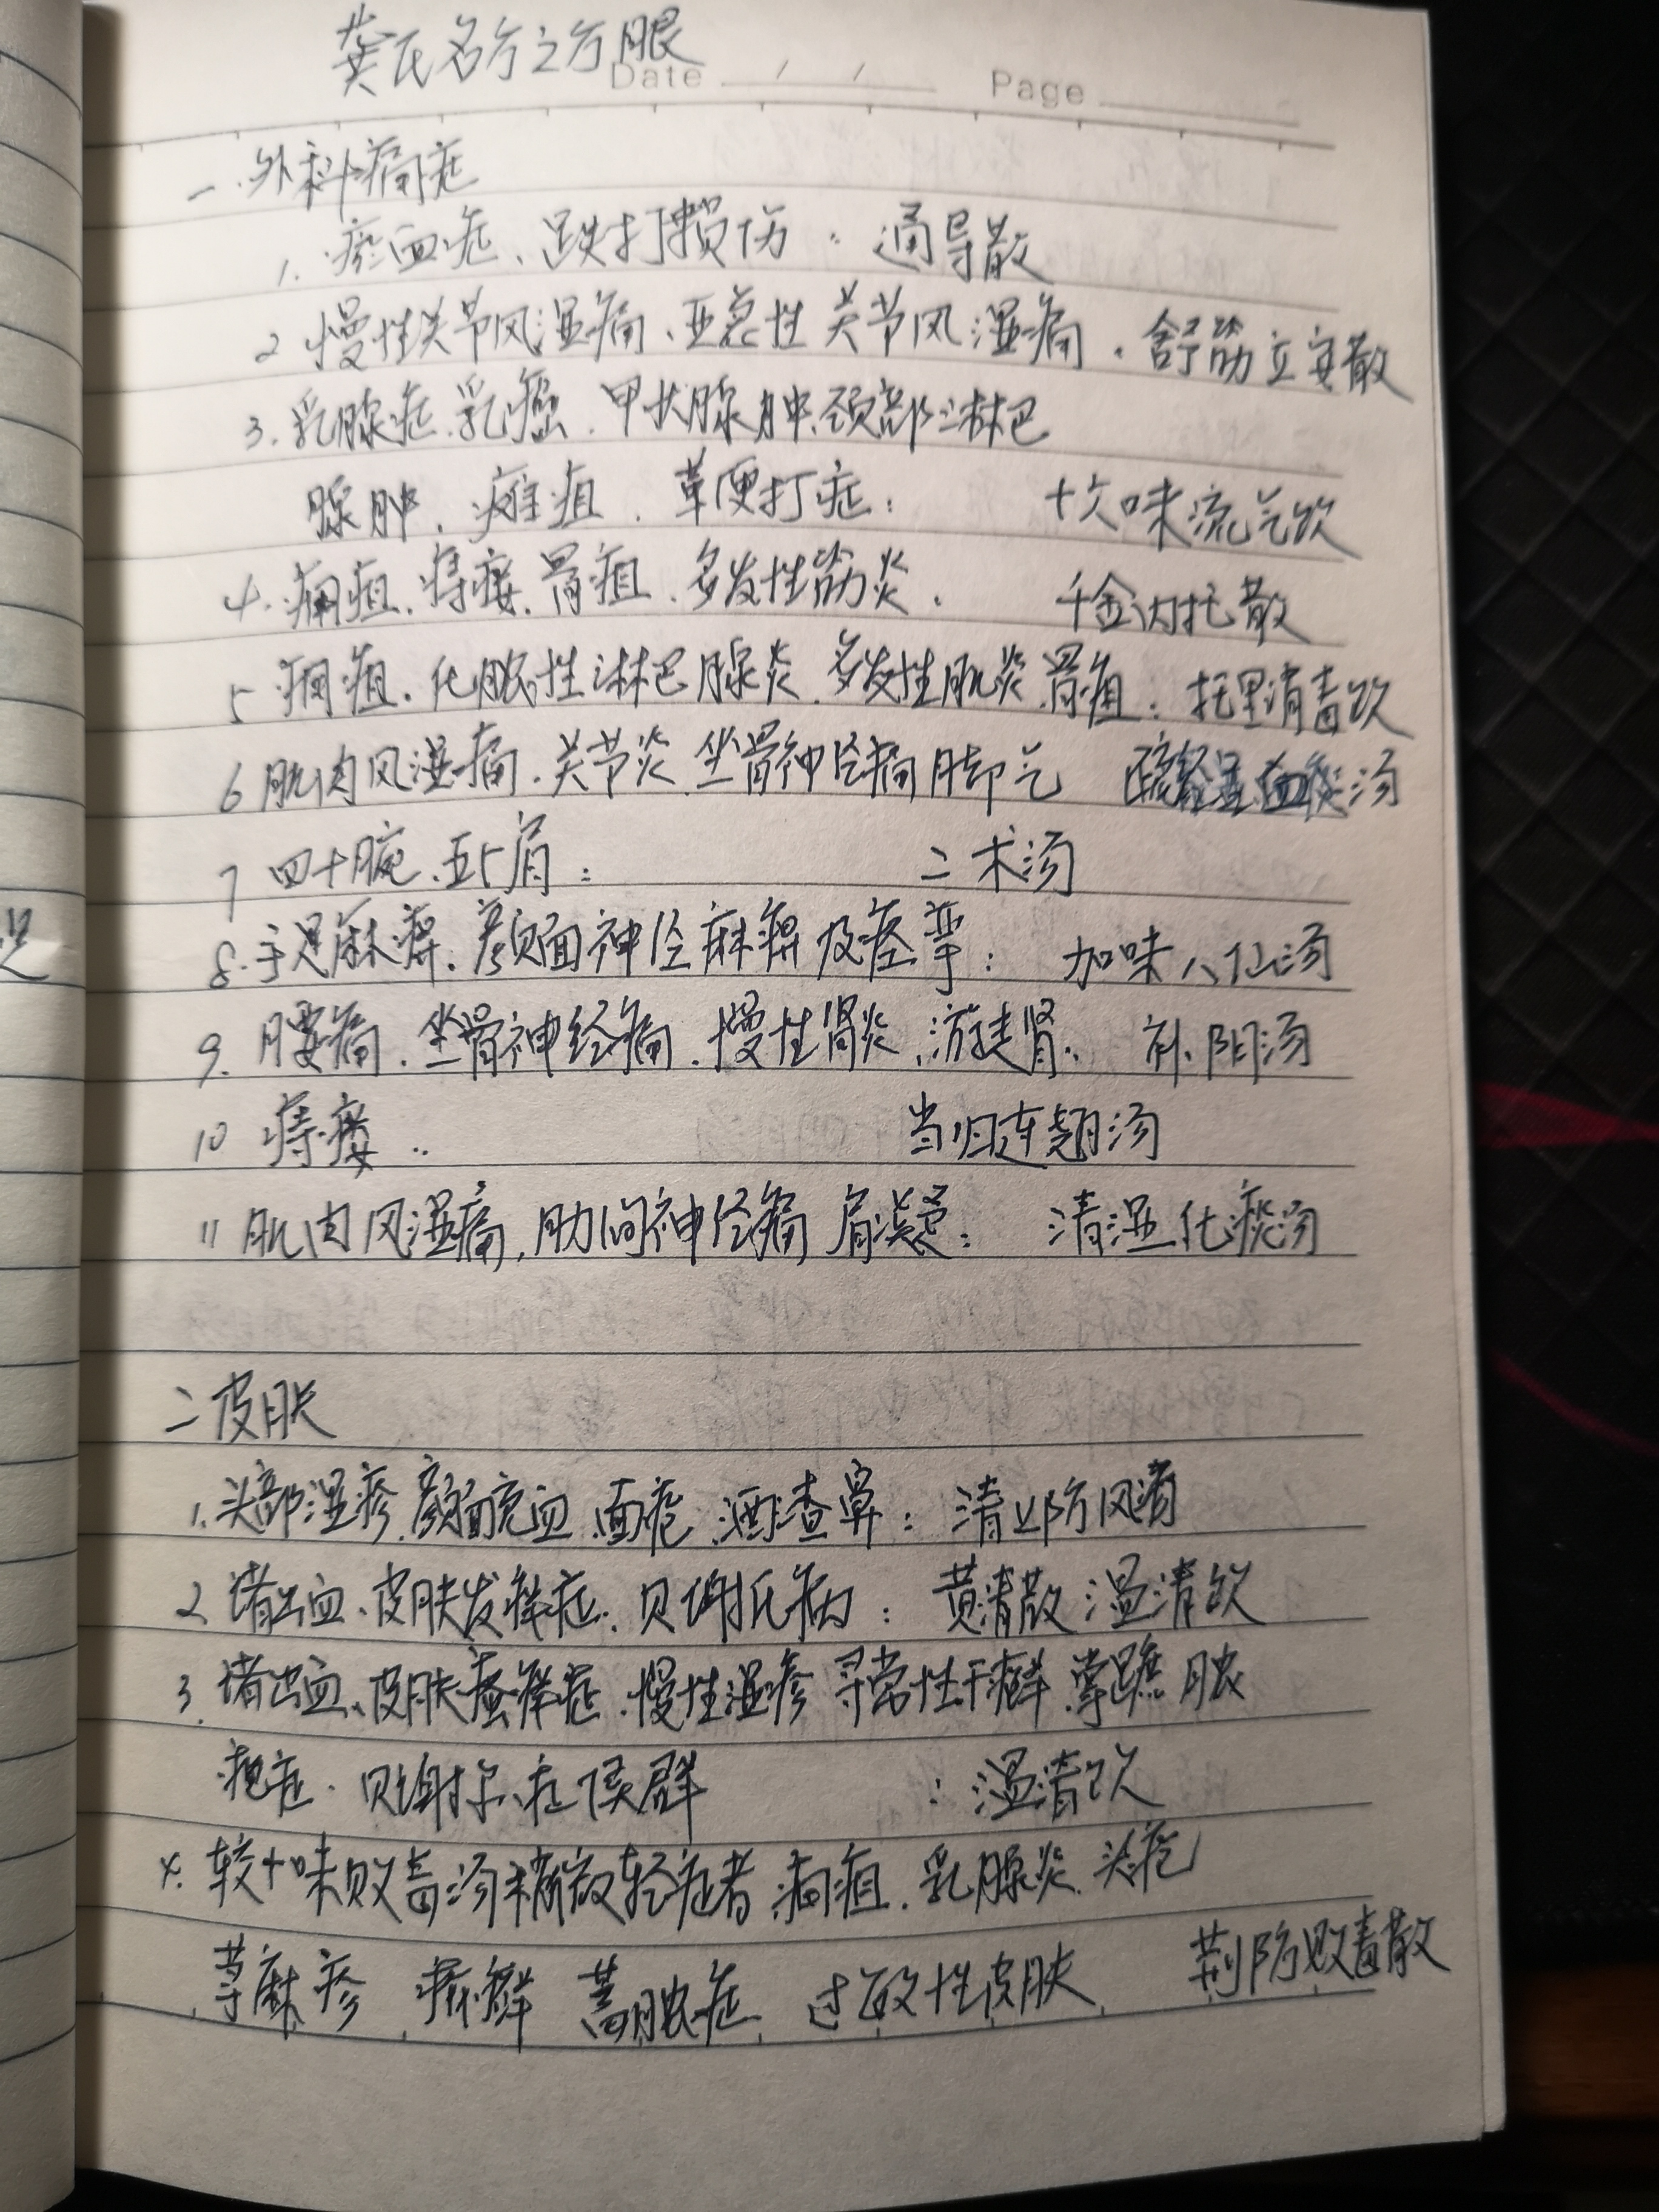 龚氏名方之方眼
Date / / Page
一.外科病症
1.瘀血症、跌打损伤:通导散
2 慢性关节风湿痛、亚急性关节风湿痛.舒筋立安散
3.乳腺症.乳癌.甲状腺肿.颈部淋巴
腺肿.瘫疽. 打症: 十六味流气饮
4.痈疽.痔瘘.骨疽.多发性筋炎. 千金内托散
5 痈疽.化脓性淋巴腺炎.多发性肌炎.骨疽:托里消毒饮
6 肌肉风湿痛.关节炎.坐骨神经痛 脚气 汤
7 四十腕.五十肩: 二术汤
8.手足麻痹.颜面神经麻痹及痉挛: 加味八仙汤
9.腰痛.坐骨神经痛.慢性肾炎.游走肾: 补阴汤
10 痔瘘: 当归连翘汤
11 肌肉风湿痛,肋间神经痛 肩凝: 清湿化痰汤
二皮肤
1.头部湿疹.颜面充血.面疱.酒渣鼻:清上防风
2.诸出血、皮肤发痒症. :黄清散 温清饮
3.诸出血、皮肤瘙痒症.慢性湿疹 寻常性干癣.掌蹠脓
疱症. 症候群 :温清饮
4.较十味败毒汤稍微轻症者 痈疽.乳腺炎.头疮
荨麻疹 疥癣 蓄脓症 过敏性皮肤 荆防败毒散